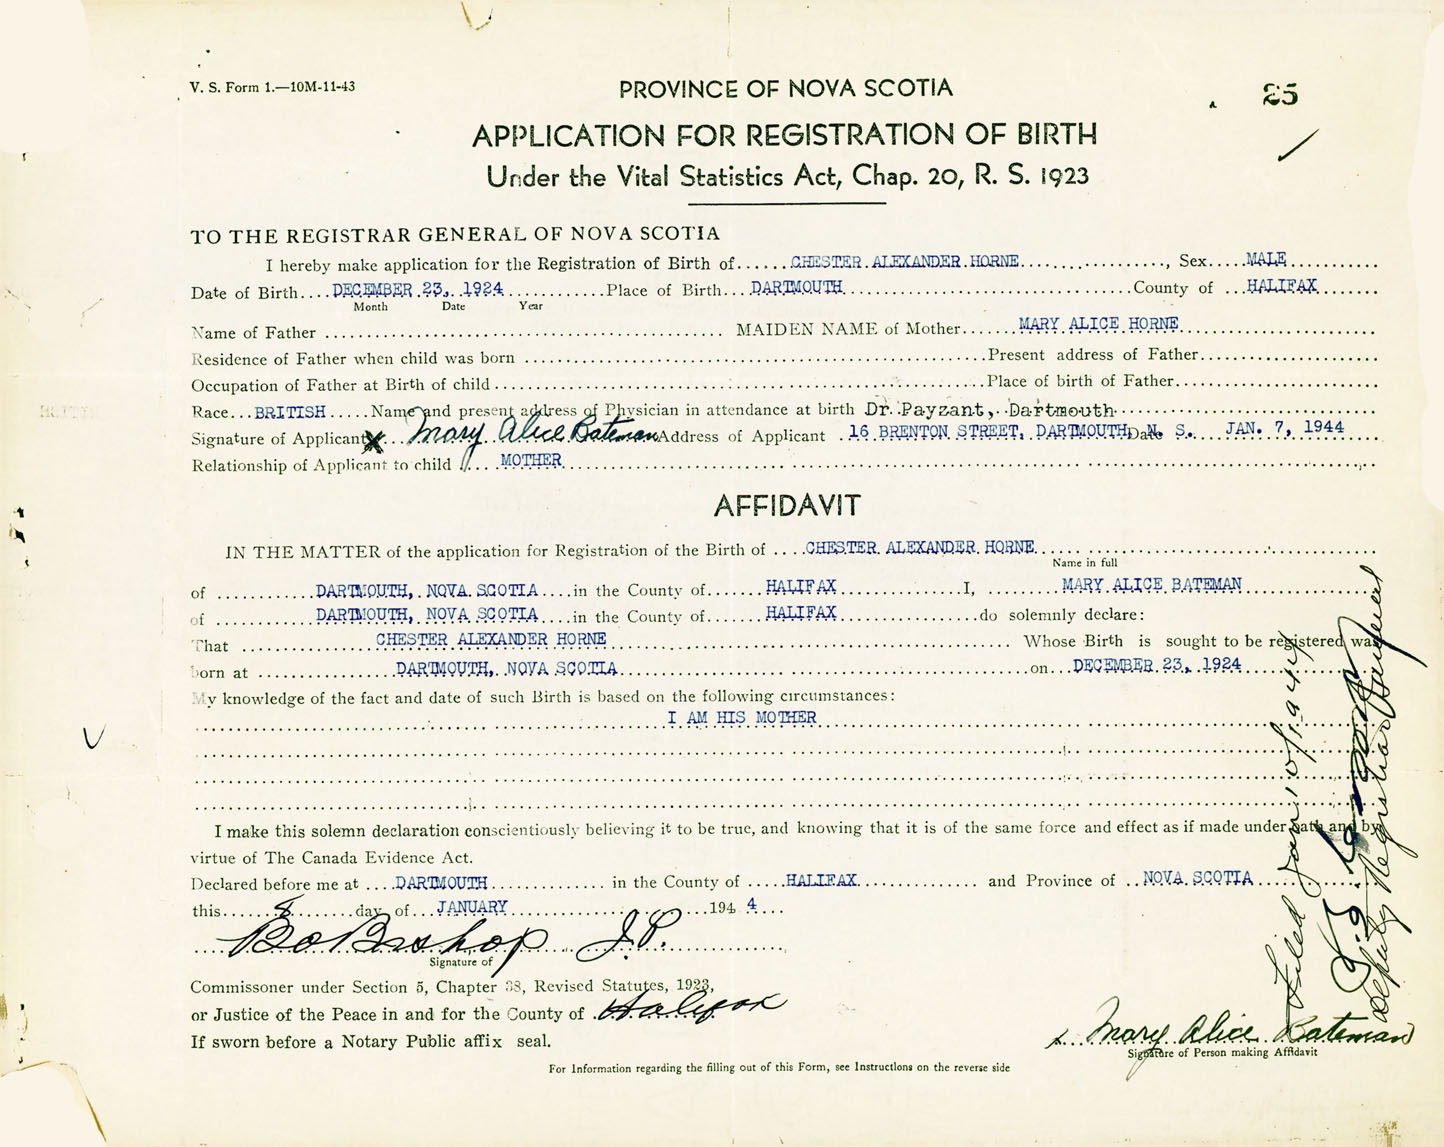 V. S. Form 1.—10M-11-43
PROVINCE OF NOVA SCOTIA
25
APPLICATION FOR REGISTRATION OF BIRTH
Under the Vital Statistics Act, Chap. 20, R. S. 1923
TO THE REGISTRAR GENERAL OF NOVA SCOTIA
I hereby make application for the Registration of Birth of CHESTER ALEXANDER HORNE, Sex MALE
Date of Birth DECEMBER 23, 1924 Place of Birth DARTMOUTH County of HALIFAX
Month Date Year
Name of Father MAIDEN NAME of Mother MARY ALICE HORNE
Residence of Father when child was born Present address of Father
Occupation of Father at Birth of child Place of birth of Father
Race BRITISH Name and present address of Physician in attendance at birth Dr. Payzant, Dartmouth
Signature of Applicant X Mary Alice Bateman Address of Applicant 16 BRENTON STREET, DARTMOUTH, N. S. Date JAN. 7, 1944
Relationship of Applicant to child MOTHER
AFFIDAVIT
IN THE MATTER of the application for Registration of the Birth of CHESTER ALEXANDER HORNE
Name in full
of DARTMOUTH, NOVA SCOTIA in the County of HALIFAX I, MARY ALICE BATEMAN
of DARTMOUTH, NOVA SCOTIA in the County of HALIFAX do solemnly declare:
That CHESTER ALEXANDER HORNE Whose Birth is sought to be registered was
born at DARTMOUTH, NOVA SCOTIA on DECEMBER 23, 1924
My knowledge of the fact and date of such Birth is based on the following circumstances:
I AM HIS MOTHER
I make this solemn declaration conscientiously believing it to be true, and knowing that it is of the same force and effect as if made under oath and by
virtue of The Canada Evidence Act.
Declared before me at DARTMOUTH in the County of HALIFAX and Province of NOVA SCOTIA
this 8 day of JANUARY 1944
Bishop J.P.
Signature of
Commissoner under Section 5, Chapter 38, Revised Statutes, 1923,
or Justice of the Peace in and for the County of Halifax
If sworn before a Notary Public affix seal.
x Mary Alice Bateman
Signature of Person making Affidavit
For Information regarding the filling out of this Form, see Instructions on the reverse side
Filed Jan. 10/1944
Deputy Registrar General